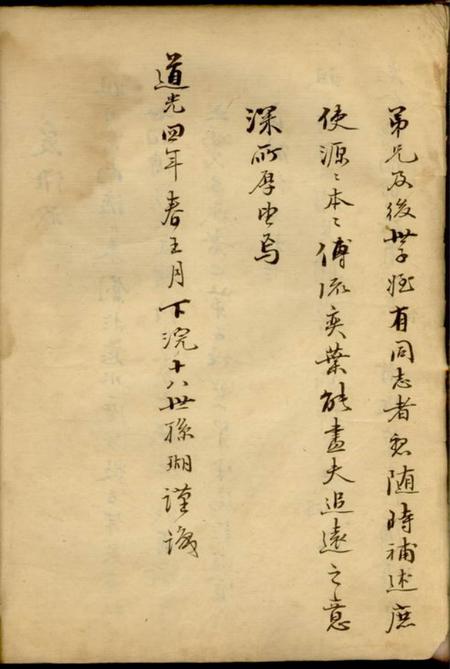 弟兄及後世子姪有同志者忽随時補述庶
使源〻本〻傳流奕葉能盡夫追遠之意
深所厚望焉
道光四年春王月下浣十八世孫瑚謹識